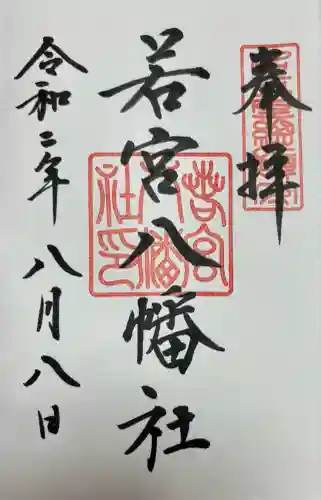 奉拝
若宮八幡社
令和二年八月八日
若宮八幡社印